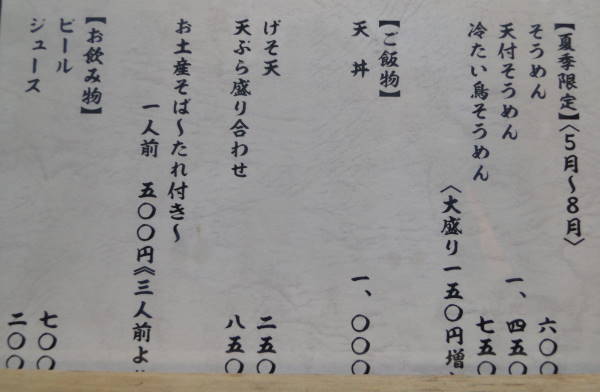 【夏季限定】〈5月～8月〉
そうめん 六〇〇
天付そうめん 一、四五〇
冷たい鳥そうめん 七五〇
〈大盛り一五〇円増
【ご飯物】
天丼 一、〇〇〇
げそ天 二五〇
天ぷら盛り合わせ 八五〇
お土産そば～たれ付き～
一人前 五〇〇円《三人前よ
【お飲み物】
ビール 七〇〇
ジュース 二〇〇